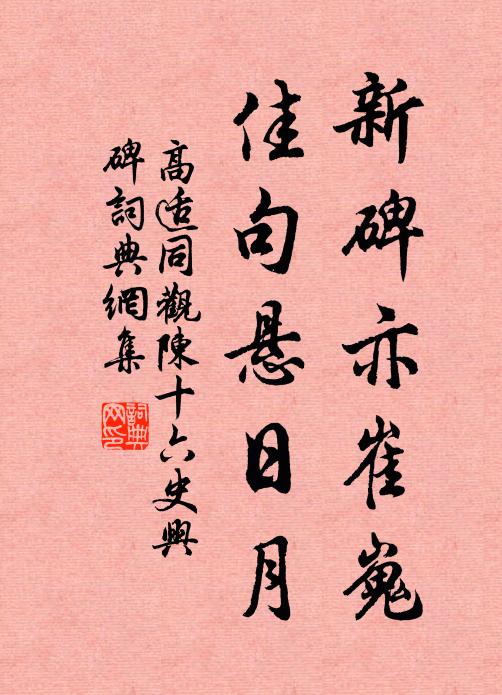 新碑亦崔嵬
佳句悬日月
高适同觀陳十六史興
碑詞典網集
詞典网印